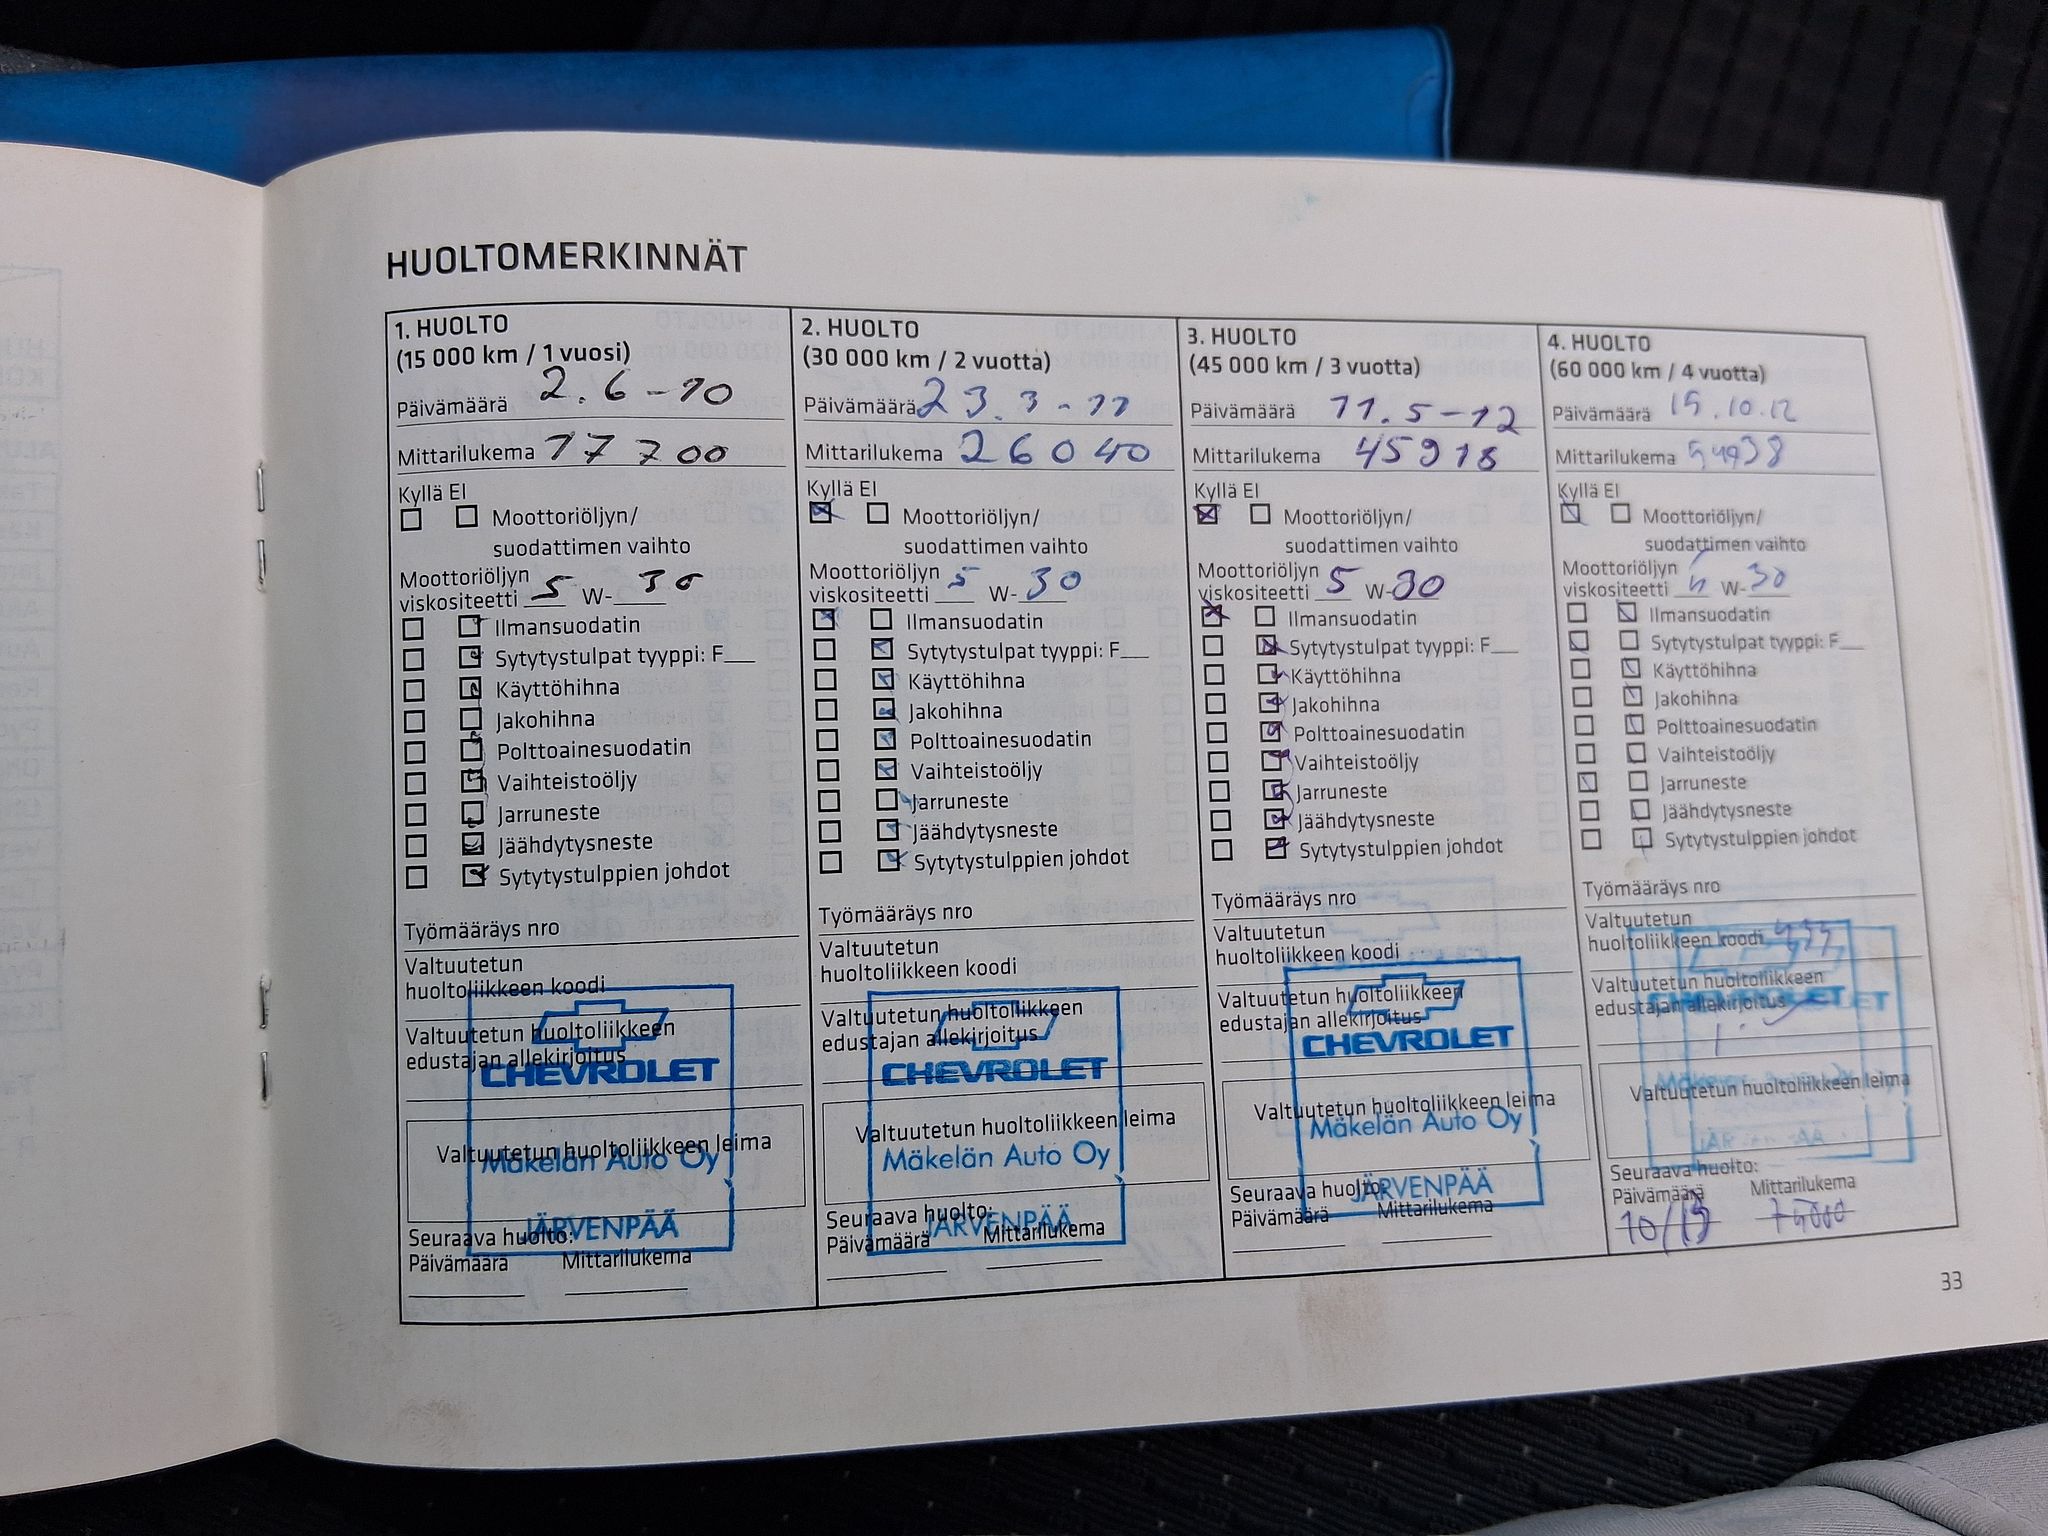 HUOLTOMERKINNÄT
1. HUOLTO
(15 000 km / 1 vuosi)
Päivämäärä 2.6-10
Mittarilukema 17 700
Kyllä EI
Moottoriöljyn/
suodattimen vaihto
Moottoriöljyn
viskositeetti 5 W-30
Ilmansuodatin
Sytytystulpat tyyppi: F__
Käyttöhihna
Jakohihna
Polttoainesuodatin
Vaihteistoöljy
Jarruneste
Jäähdytysneste
Sytytystulppien johdot
Työmääräys nro
Valtuutetun
huoltoliikkeen koodi
Valtuutetun huoltoliikkeen
edustajan allekirjoitus
CHEVROLET
Valtuutetun huoltoliikkeen leima
Mäkelän Auto Oy
JÄRVENPÄÄ
Seuraava huolto:
Päivämäärä Mittarilukema
2. HUOLTO
(30 000 km / 2 vuotta)
Päivämäärä 23.3-11
Mittarilukema 26040
Kyllä EI
Moottoriöljyn/
suodattimen vaihto
Moottoriöljyn
viskositeetti 5 W-30
Ilmansuodatin
Sytytystulpat tyyppi: F__
Käyttöhihna
Jakohihna
Polttoainesuodatin
Vaihteistoöljy
Jarruneste
Jäähdytysneste
Sytytystulppien johdot
Työmääräys nro
Valtuutetun
huoltoliikkeen koodi
Valtuutetun huoltoliikkeen
edustajan allekirjoitus
CHEVROLET
Valtuutetun huoltoliikkeen leima
Mäkelän Auto Oy
JÄRVENPÄÄ
Seuraava huolto:
Päivämäärä Mittarilukema
3. HUOLTO
(45 000 km / 3 vuotta)
Päivämäärä 11.5-12
Mittarilukema 45918
Kyllä EI
Moottoriöljyn/
suodattimen vaihto
Moottoriöljyn
viskositeetti 5 W-30
Ilmansuodatin
Sytytystulpat tyyppi: F__
Käyttöhihna
Jakohihna
Polttoainesuodatin
Vaihteistoöljy
Jarruneste
Jäähdytysneste
Sytytystulppien johdot
Työmääräys nro
Valtuutetun
huoltoliikkeen koodi
Valtuutetun huoltoliikkeen
edustajan allekirjoitus
CHEVROLET
Valtuutetun huoltoliikkeen leima
Mäkelän Auto Oy
JÄRVENPÄÄ
Seuraava huolto:
Päivämäärä Mittarilukema
4. HUOLTO
(60 000 km / 4 vuotta)
Päivämäärä 15.10.12
Mittarilukema
Kyllä EI
Moottoriöljyn/
suodattimen vaihto
Moottoriöljyn
viskositeetti 5 W-30
Ilmansuodatin
Sytytystulpat tyyppi: F__
Käyttöhihna
Jakohihna
Polttoainesuodatin
Vaihteistoöljy
Jarruneste
Jäähdytysneste
Sytytystulppien johdot
Työmääräys nro
Valtuutetun
huoltoliikkeen koodi
Valtuutetun huoltoliikkeen
edustajan allekirjoitus
Valtuutetun huoltoliikkeen leima
JÄRVENPÄÄ
Seuraava huolto:
Päivämäärä Mittarilukema
10/13 75000
33